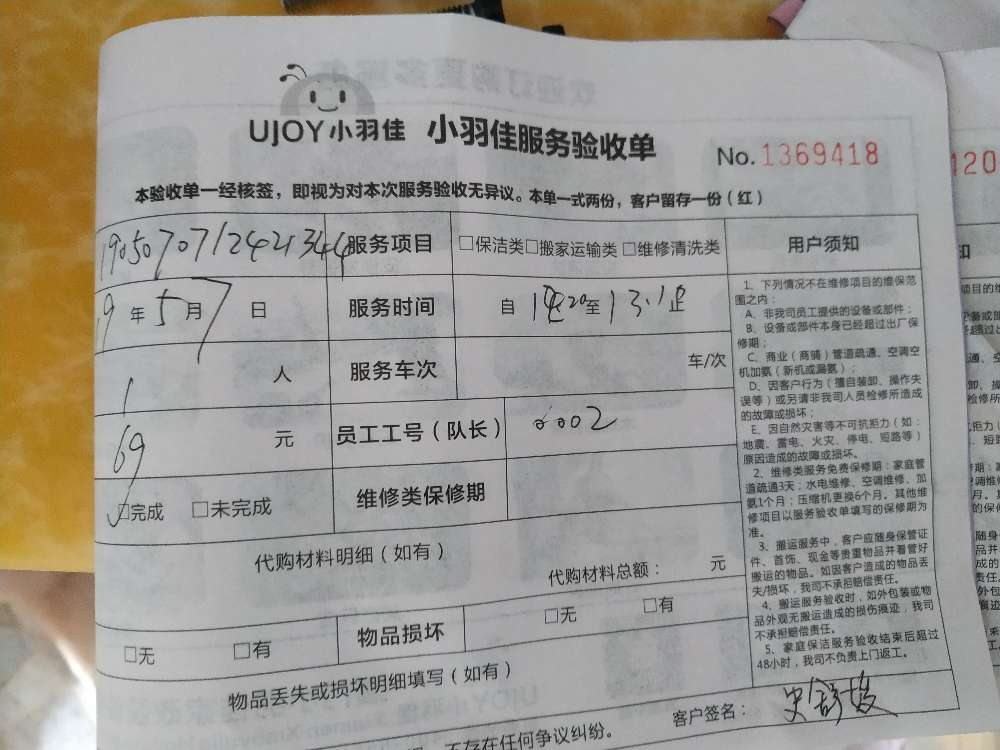 UJOY小羽佳 小羽佳服务验收单
No.1369418
本验收单一经核签，即视为对本次服务验收无异议。本单一式两份，客户留存一份（红）
服务项目 □保洁类□搬家运输类 □维修清洗类
9年5月7日 服务时间 自 至
1人 服务车次 车/次
69元 员工工号（队长） 0002
□完成 □未完成 维修类保修期
代购材料明细（如有）
代购材料总额： 元
□无 □有 物品损坏 □无 □有
物品丢失或损坏明细填写（如有）
客户签名：
不存在任何争议纠纷。
用户须知
1、下列情况不在维修项目的维保范
围之内：
A、非我司员工提供的设备或部件；
B、设备或部件本身已经超过出厂保
修期；
C、商业（商铺）管道疏通、空调空
机加氨（新机或漏氨）；
D、因客户行为（擅自装卸、操作失
误等）或另请非我司人员检修所造成
的故障或损坏；
E、因自然灾害等不可抗拒力（如：
地震、雷电、火灾、停电、短路等）
原因造成的故障或损坏。
2、维修类服务免费保修期：家庭管
道疏通3天；水电维修、空调维修、加
氨1个月；压缩机更换6个月。其他维
修项目以服务验收单填写的保修期为
准。
3、搬运服务中，客户应随身保管证
件、首饰、现金等贵重物品并看管好
搬运的物品。如因客户造成的物品丢
失/损坏，我司不承担赔偿责任。
4、搬运服务验收时，如外包装或物
品外观无搬运造成的损伤痕迹，我司
不承担赔偿责任。
5、家庭保洁服务验收结束后超过
48小时，我司不负责上门返工。
420